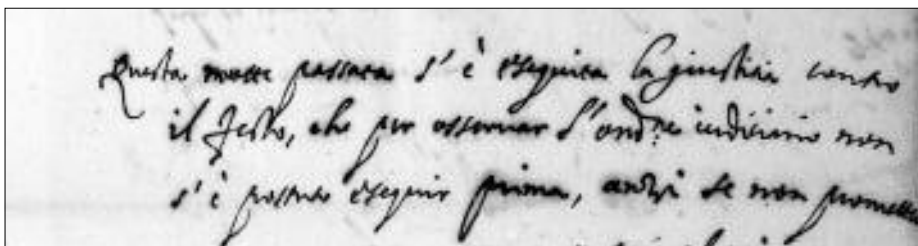 Questa notte passata s'è eseguita la giustitia contro
il Testo, che per osservar l'ord.e iudiciario non
s'è potuto eseguir prima, anzi se non promette